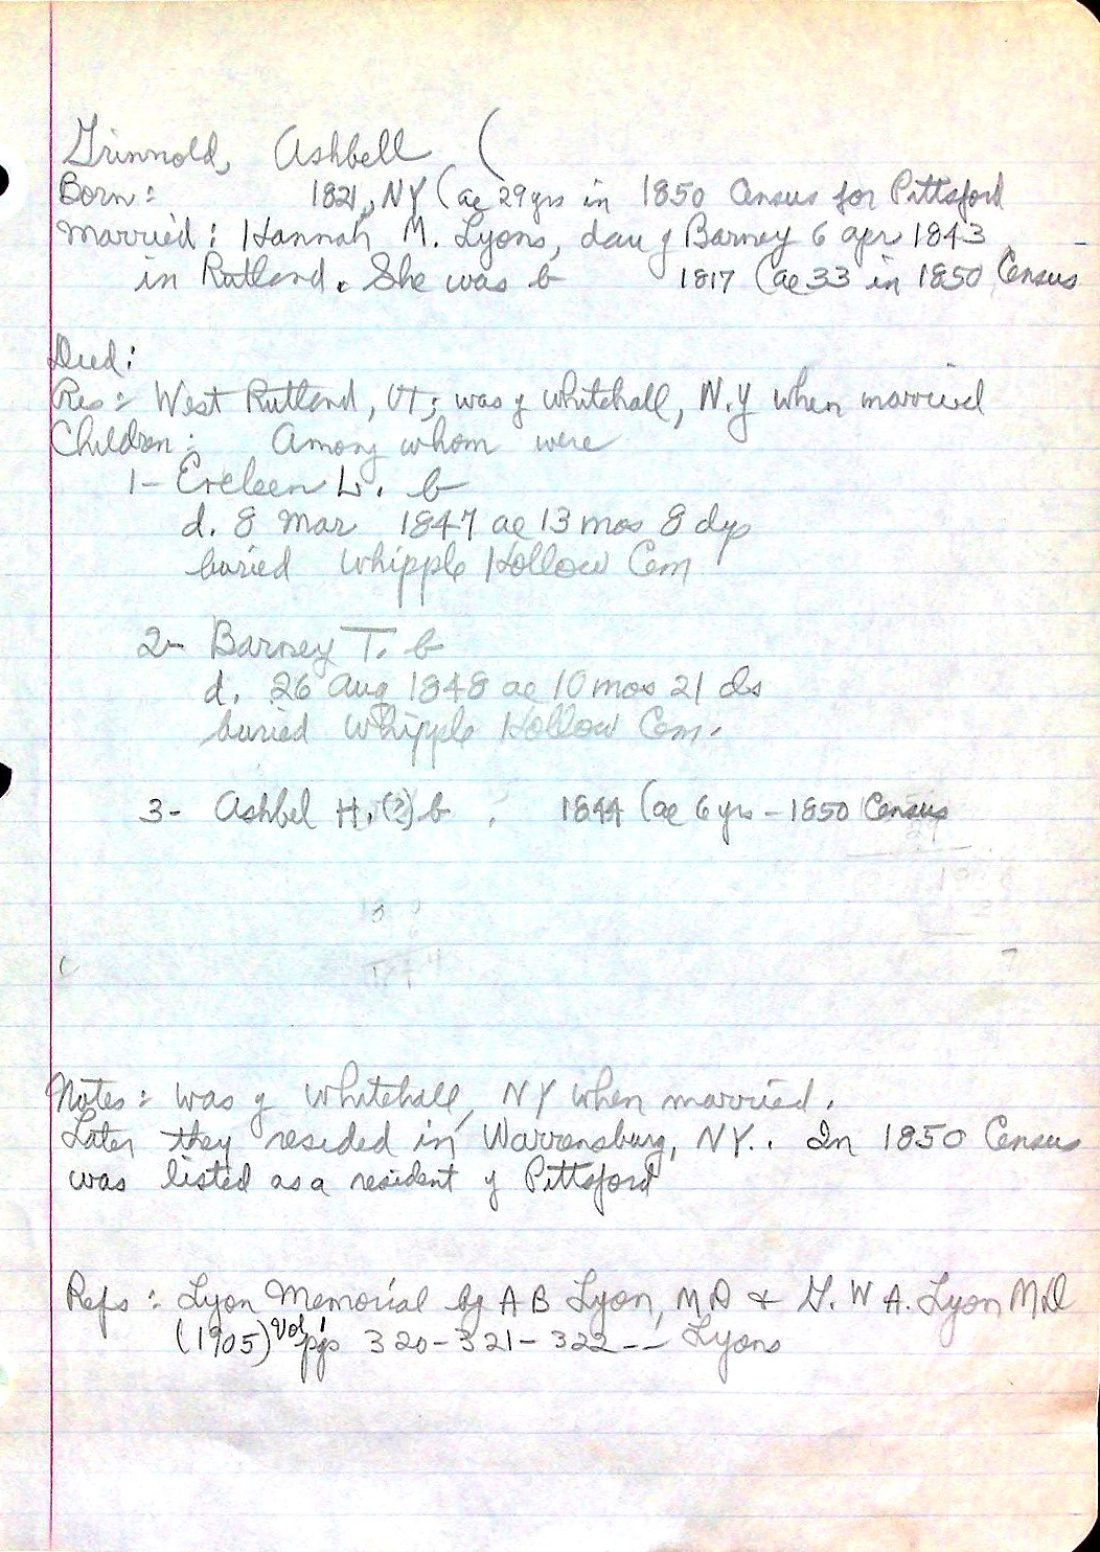 Grinnold, Ashbell (
Born: 1821, NY (ae 29 yrs in 1850 Census for Pittsford
Married: Hannah M. Lyons, dau of Barney 6 apr 1843
in Rutland. She was b 1817 (ae 33 in 1850 Census
Died:
Res: West Rutland, VT; was of Whitehall, N.Y when married
Children: Among whom were
1- Ereleen L. b
d. 8 Mar 1847 ae 13 mos 8 dys
buried Whipple Hollow Cem
2- Barney T. b
d. 26 Aug 1848 ae 10 mos 21 ds
buried Whipple Hollow Cem.
3- Ashbel H. (?) b 1844 (ae 6 yrs - 1850 Census
Notes: was of Whitehall, NY when married.
Later they resided in Warrensburg, NY.. In 1850 Census
was listed as a resident of Pittsford
Refs: Lyon Memorial by A B Lyon, MD & G. W A. Lyon MD
(1905) Vol pps 320-321-322-- Lyons